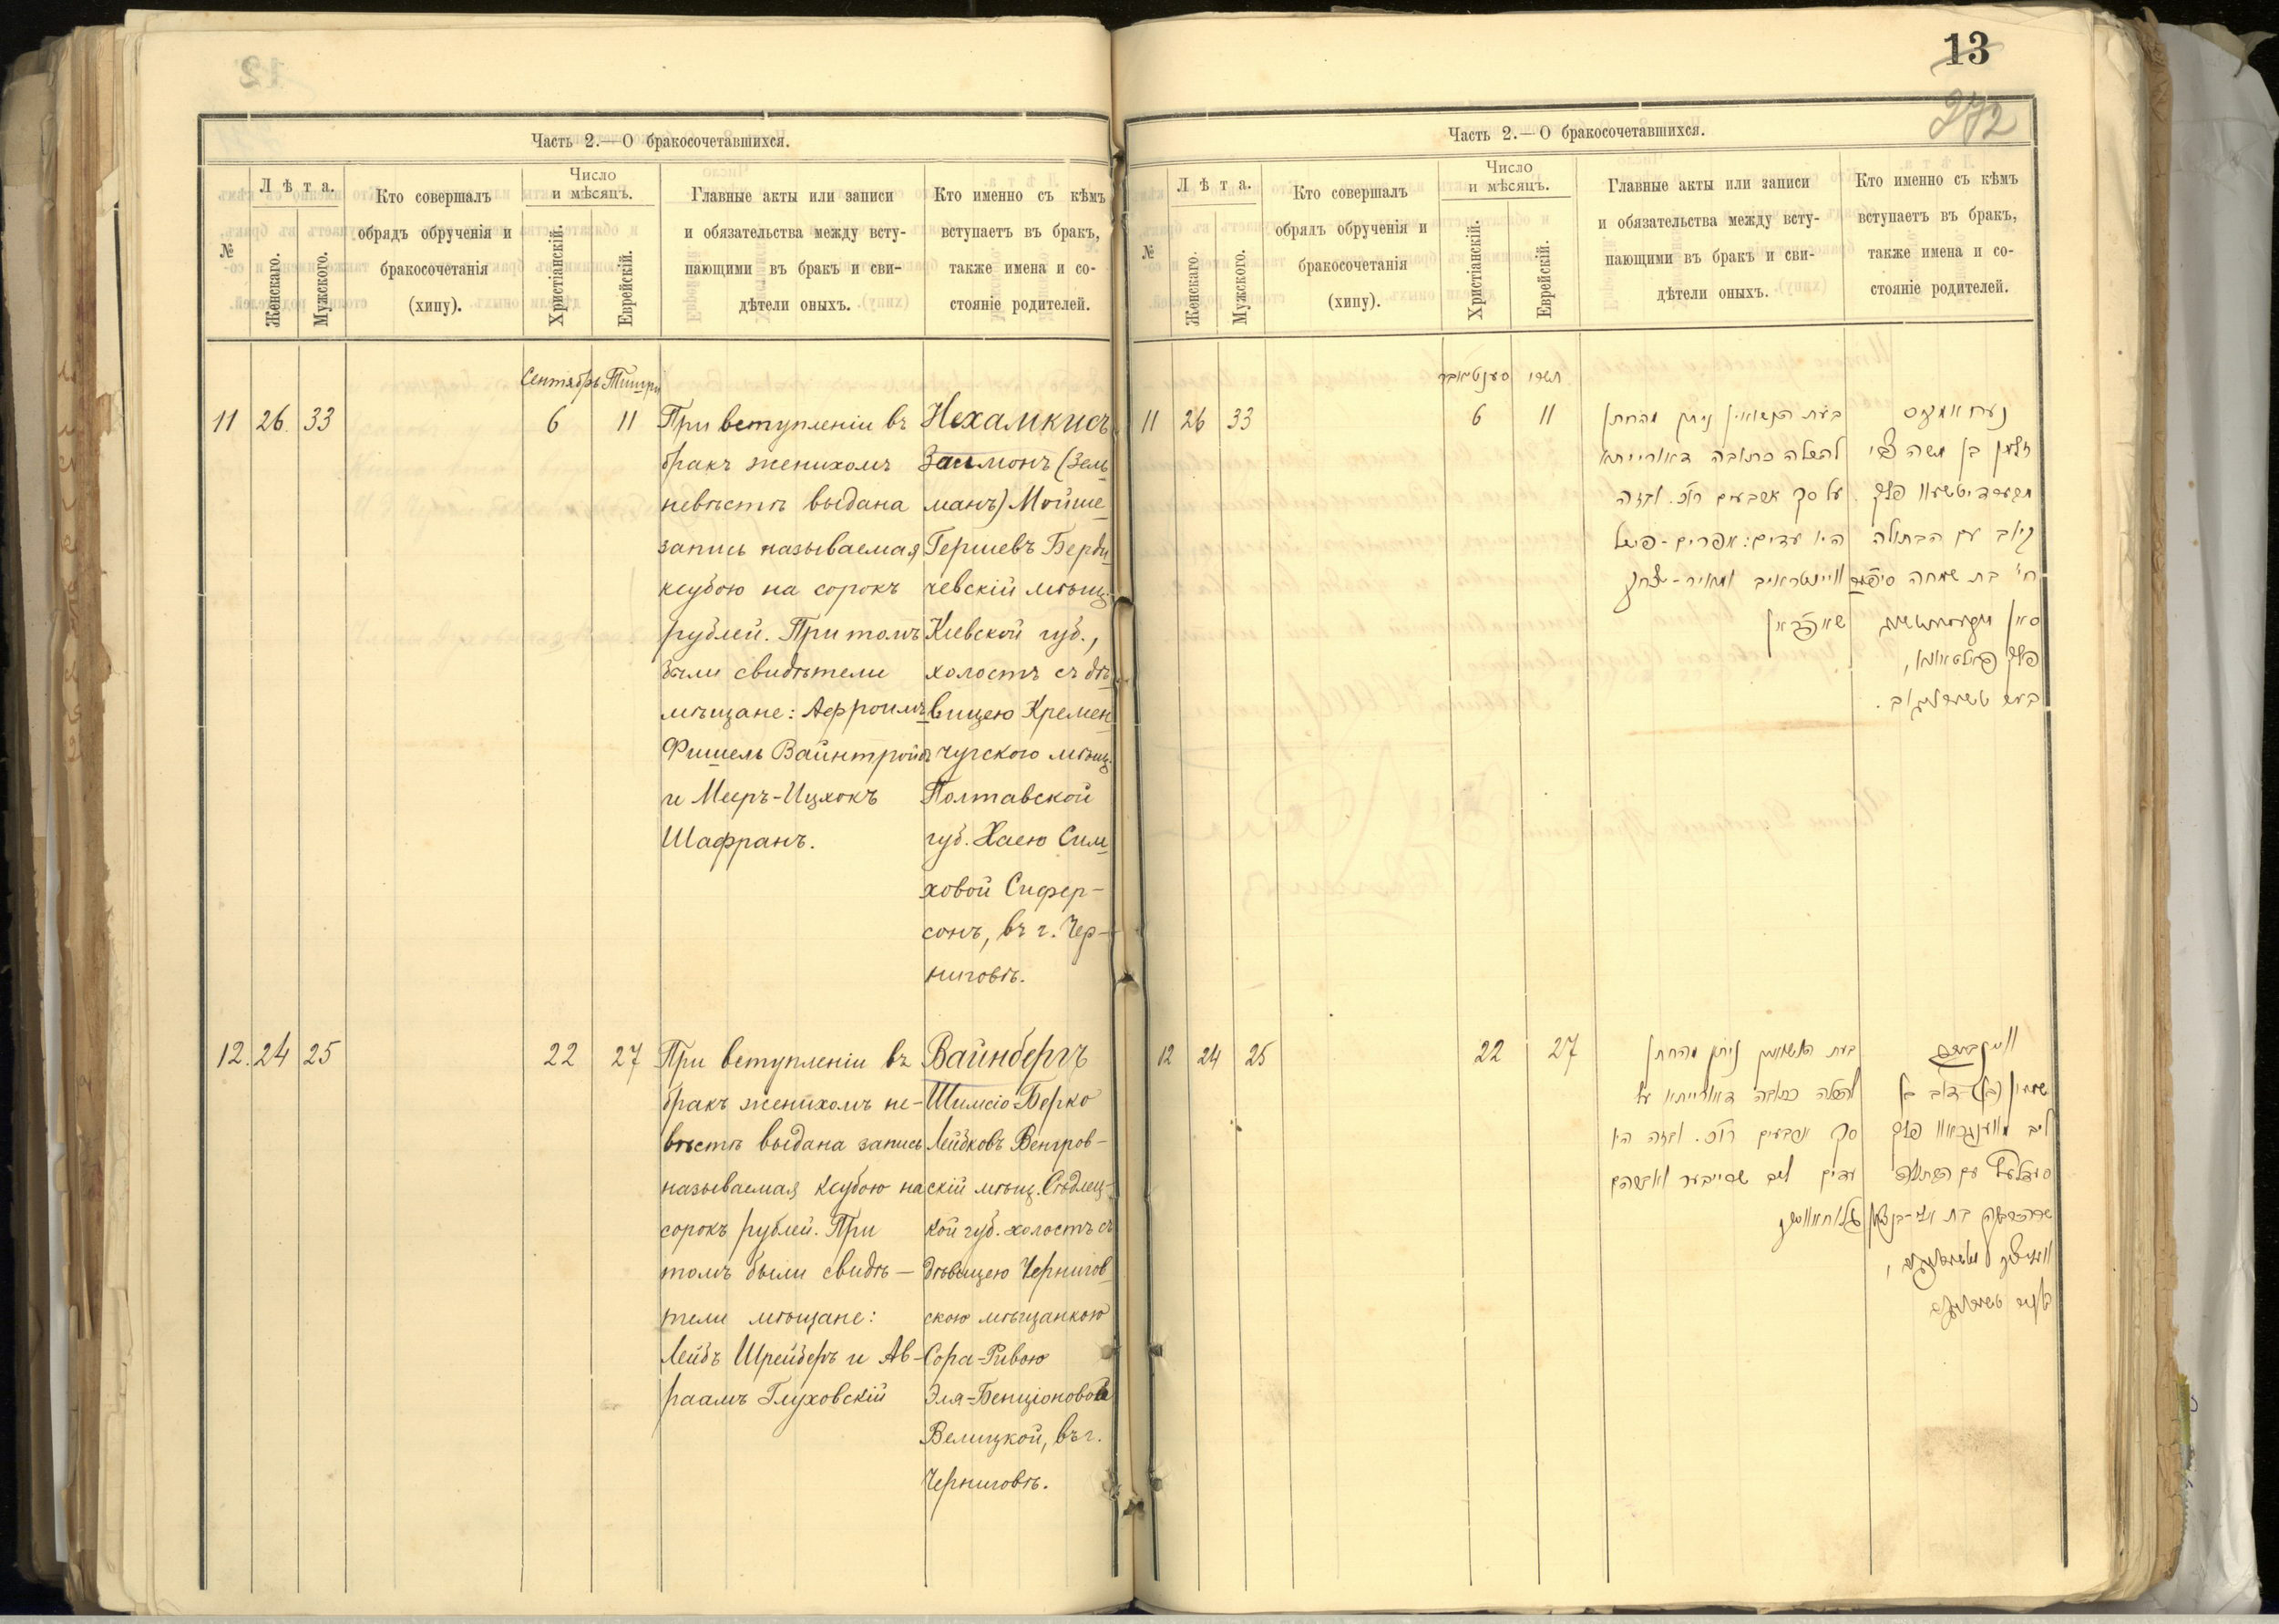 Часть 2.— О бракосочетавшихся.
№
Лѣта.
Женскаго.
Мужского.
Кто совершалъ
обрядъ обрученія и
бракосочетанія
(хипу).
Число
и мѣсяцъ.
Христіанскій.
Еврейскій.
Главные акты или записи
и обязательства между всту-
пающими въ бракъ и сви-
дѣтели оныхъ.
Кто именно съ кѣмъ
вступаетъ въ бракъ,
также имена и со-
стояніе родителей.
Сентябрь Тишри
11 26. 33 6 11
При вступленіи въ
бракъ женихомъ
невѣстѣ выдана
запись называемая
ксубою на сорокъ
рублей. При томъ
были свидѣтели
мѣщане: Афроимъ
Фишель Вайнтройбъ
и Мееръ-Ицхокъ
Шафранъ.
Нехамкисъ
Залмонъ (Зель
манъ) Мойше
Гершевъ Берди
чевскій мѣщ.
Кіевской губ.,
холостъ съ дѣ
вицею Кремен
чугского мѣщ.
Полтавской
губ. Хаею Сим
ховой Сифер-
сонъ, въ г. Чер-
ниговѣ.
12. 24 25 22 27
При вступленіи въ
бракъ женихомъ не-
вѣстѣ выдана запись
называемая ксубою на
сорокъ рублей. При
томъ были свидѣ-
тели мѣщане:
Лейбъ Шрейберъ и Ав-
раамъ Глуховскій
Вайнбергъ
Шимсіо-Берко
Лейбковъ Венгров-
скій мѣщ. Сѣдлец-
кой губ. холостъ съ
дѣвицею Чернигов
скою мѣщанкою
Сора-Ривою
Эля-Бенціоновой
Велицкой, въ г.
Черниговѣ.
13
272
Часть 2.— О бракосочетавшихся.
№
Лѣта.
Женскаго.
Мужского.
Кто совершалъ
обрядъ обрученія и
бракосочетанія
(хипу).
Число
и мѣсяцъ.
Христіанскій.
Еврейскій.
Главные акты или записи
и обязательства между всту-
пающими въ бракъ и сви-
дѣтели оныхъ.
Кто именно съ кѣмъ
вступаетъ въ бракъ,
также имена и со-
стояніе родителей.
סענטיאבר תשרי
11 26 33 6 11
בעת הנשואין ניתן מהחתן
להכלה כתובה דאורייתא
על סך ארבעים רו"כ. ובזה
היו עדים: אפרים-פישל
וויינטרויב ומאיר-יצחק
שאפראן
נעחאמקיס
זלמן בן משה צבי
עם הבתולה
חי' בת שמחה
12 24 25 22 27
בעת הנשואין ניתן מהחתן
להכלה כתובה דאורייתא על
סך ארבעים רו"כ. ובזה היו
עדים ליב שרייבער ואברהם